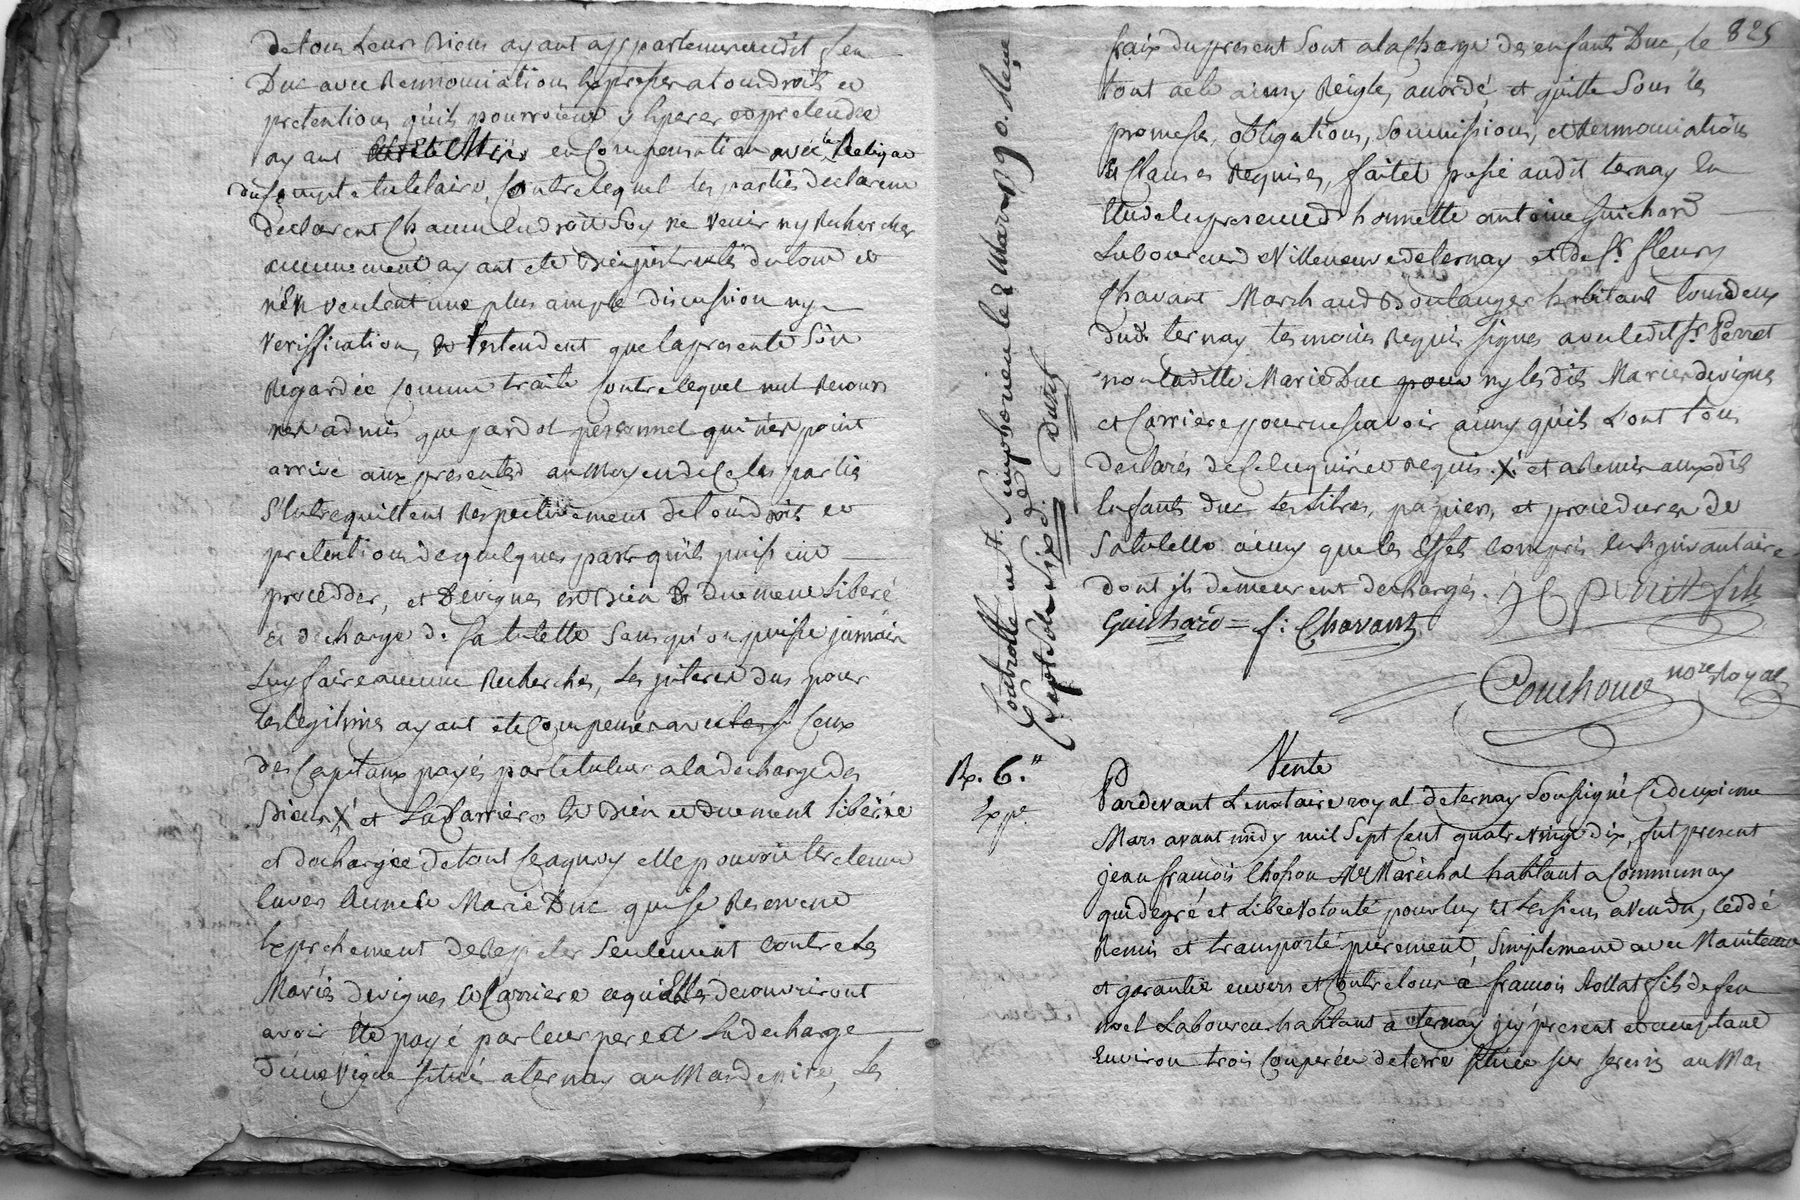 de tous leurs Biens ayant appartenu audit feu
Duc avec Rennonciation Expresse a tous droits et
pretentions quils pourroient y Esperer et pretendre
ayant en Compensation avec le Reliqua
du Compte tutelaire, Contre lequel les parties declarent
declarent Chacun Endroit Soy ne venir ny Rechercher
aucunement ayant ete Bien instruits du tout et
n'En veulent une plus ample discussion ny
verification, et Entendent que la presente Soit
Regardée Comme traité Contre lequel nul Recours
n'est admis que pardol personnel qui n'est point
arrivé aux presentes au Moyen de Ce les parties
S'Entrequittent Respectivement de tous droits et
pretentions de quelques part quils puissent
proceder, et Devignes est Bien & Duement Liberé
et decharge de sa tutelle Sans qu'on puisse jamais
Luy faire aucune Recherches, Les jnterets dus pour
les legitimes ayant été Compensés avec Ceux
des Capitaux payés par le tuteur a la decharge des
Biens X et La Carriere Est Bien et duement liberée
et dechargée de tout Ce aquoy elle pouvoit Etre tenue
Envers Anne et Marie Duc qui se Reservent
Expressement de Repeter Seulement Contre Les
Mariés devignes et Carriere ce qu'Elles decouvriront
avoir Eté payé par leur pere et La decharge
D'une vigne situé a ternay au Mas depire, Les
825
fraix du present Sont a la Charge des enfants Duc, le
tout a eté ainsy Reiglé, accordé, et quitté Sous les
promesses, obligations, Soumissions, et Rennonciations
& Clauses Requises, fait et passé audit ternay En
Etude En presence d'honnette antoine Guichard
Laboureur d Villeneuve de ternay et de Sr. fleury
Chavant Marchand Boulanger habitant tous deux
dudit ternay temoins Requis signes avec ledit Sr. Perret
non laditte Marie Duc ny les dits Mariés devignes
et Carriere pour ne scavoir ainsy quils L'ont tous
declarés de Ce Enquis et Requis. X et a Remis auxdits
Enfants duc les titres, papiers, et procedures de
Sa tutelle ainsy que les Effets Compris En Linvantaire
dont ils demeurent dechargés. Perret fils
Guichard = f: Chavant
Couchoud nore Royal
Controllé a St. Simphorien le 8 Mars 1790. Reçu
Sept sols Six d.
R. 6."
Expé.
Vente
Pardevant Le notaire royal de ternay Soussigné Ce deuxieme
Mars avant midy mil Sept Cent quatre vingt dix, fut present
jean francois Chosson Me Maréchal habitant a Communay
qui de gré et Libre volonté pour luy Et Les siens a vendu, Ceddé
Remis et transporté purement, simplement avec Maintenue
et garantie envers et Contre tous a francois Rollat fils de feu
noel Laboureur habitant a ternay jcy present et acceptant
Environ trois Couperées de terre située sur seresin au Mas